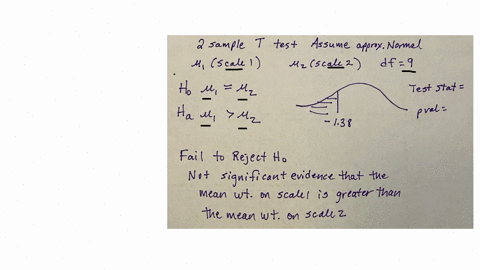 2 sample T test Assume approx. Normal
μ₁ (scale 1) μ₂ (scale 2) df = 9
H₀ μ₁ = μ₂
Ha μ₁ > μ₂
Test stat =
pval =
-1.38
Fail to Reject H₀
Not significant evidence that the
mean wt. on scale 1 is greater than
the mean wt. on scale 2